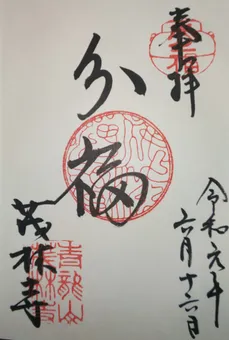 奉拝
分福
茂林寺
令和元年
六月十六日
青龍山
茂林寺